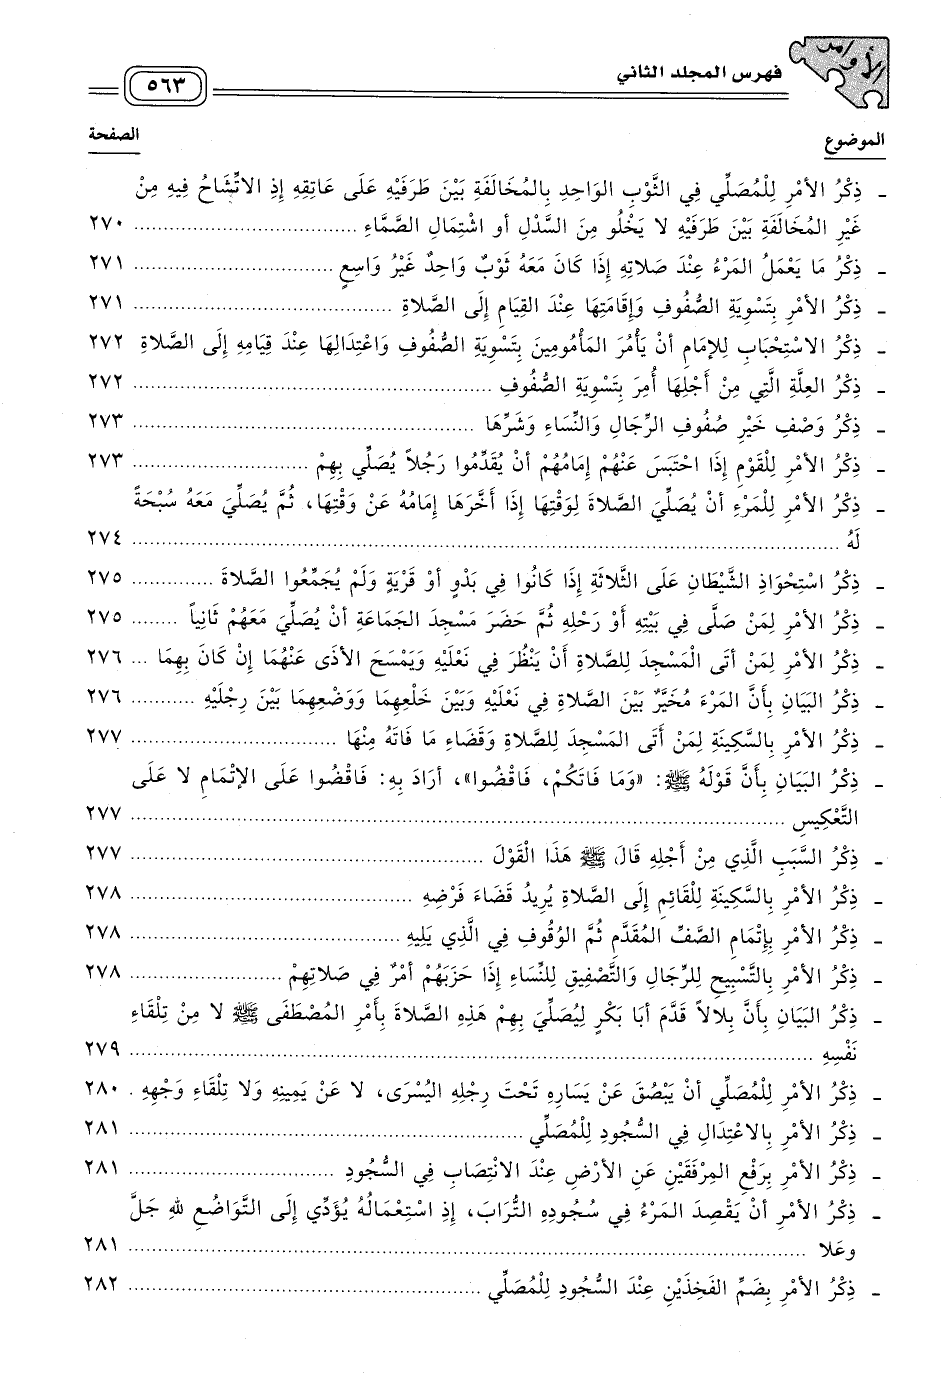 الأوامر
فهرس المجلد الثاني
٥٦٣
الموضوع
الصفحة
- ذِكْرُ الأَمْرِ لِلْمُصَلِّي فِي الثَّوْبِ الوَاحِدِ بِالمُخَالَفَةِ بَيْنَ طَرَفَيْهِ عَلَى عَاتِقِهِ إِذِ الاتِّشَاحُ فِيهِ مِنْ
غَيْرِ المُخَالَفَةِ بَيْنَ طَرَفَيْهِ لا يَخْلُو مِنَ السَّدْلِ أو اشْتِمَالِ الصَّمَّاءِ ........ ٢٧٠
- ذِكْرُ مَا يَعْمَلُ المَرْءُ عِنْدَ صَلاتِهِ إِذَا كَانَ مَعَهُ ثَوْبٌ وَاحِدٌ غَيْرُ وَاسِعٍ ........ ٢٧١
- ذِكْرُ الأَمْرِ بِتَسْوِيَةِ الصُّفُوفِ وَإِقَامَتِهَا عِنْدَ القِيَامِ إِلَى الصَّلاةِ ........ ٢٧١
- ذِكْرُ الاسْتِحْبَابِ لِلإِمَامِ أنْ يَأْمُرَ المَأْمُومِينَ بِتَسْوِيَةِ الصُّفُوفِ وَاعْتِدَالِهَا عِنْدَ قِيَامِهِ إِلَى الصَّلاةِ ٢٧٢
- ذِكْرُ العِلَّةِ الَّتِي مِنْ أَجْلِهَا أُمِرَ بِتَسْوِيَةِ الصُّفُوفِ ........ ٢٧٢
- ذِكْرُ وَصْفِ خَيْرِ صُفُوفِ الرِّجَالِ وَالنِّسَاءِ وَشَرِّهَا ........ ٢٧٣
- ذِكْرُ الأَمْرِ لِلْقَوْمِ إِذَا احْتَبَسَ عَنْهُمْ إِمَامُهُمْ أنْ يُقَدِّمُوا رَجُلاً يُصَلِّي بِهِمْ ........ ٢٧٣
- ذِكْرُ الأَمْرِ لِلْمَرْءِ أنْ يُصَلِّيَ الصَّلاةَ لِوَقْتِهَا إِذَا أَخَّرَهَا إِمَامُهُ عَنْ وَقْتِهَا، ثُمَّ يُصَلِّيَ مَعَهُ سُبْحَةً
لَهُ ........ ٢٧٤
- ذِكْرُ اسْتِحْوَاذِ الشَّيْطَانِ عَلَى الثَّلاثَةِ إِذَا كَانُوا فِي بَدْوٍ أوْ قَرْيَةٍ وَلَمْ يُجَمِّعُوا الصَّلاةَ ........ ٢٧٥
- ذِكْرُ الأَمْرِ لِمَنْ صَلَّى فِي بَيْتِهِ أَوْ رَحْلِهِ ثُمَّ حَضَرَ مَسْجِدَ الجَمَاعَةِ أنْ يُصَلِّيَ مَعَهُمْ ثَانِياً ........ ٢٧٥
- ذِكْرُ الأَمْرِ لِمَنْ أتَى الْمَسْجِدَ لِلصَّلاةِ أَنْ يَنْظُرَ فِي نَعْلَيْهِ وَيَمْسَحَ الأَذَى عَنْهُمَا إِنْ كَانَ بِهِمَا ... ٢٧٦
- ذِكْرُ البَيَانِ بِأَنَّ المَرْءَ مُخَيَّرٌ بَيْنَ الصَّلاةِ فِي نَعْلَيْهِ وَبَيْنَ خَلْعِهِمَا وَوَضْعِهِمَا بَيْنَ رِجْلَيْهِ ........ ٢٧٦
- ذِكْرُ الأَمْرِ بِالسَّكِينَةِ لِمَنْ أَتَى المَسْجِدَ لِلصَّلاةِ وَقَضَاءِ مَا فَاتَهُ مِنْهَا ........ ٢٧٧
- ذِكْرُ البَيَانِ بِأَنَّ قَوْلَهُ ﷺ: «وَمَا فَاتَكُمْ، فَاقْضُوا»، أرَادَ بِهِ: فَاقْضُوا عَلَى الإِتْمَامِ لا عَلَى
التَّعْكِيسِ ........ ٢٧٧
- ذِكْرُ السَّبَبِ الَّذِي مِنْ أَجْلِهِ قَالَ ﷺ هَذَا القَوْلَ ........ ٢٧٧
- ذِكْرُ الأَمْرِ بِالسَّكِينَةِ لِلْقَائِمِ إِلَى الصَّلاةِ يُرِيدُ قَضَاءَ فَرْضِهِ ........ ٢٧٨
- ذِكْرُ الأَمْرِ بِإِتْمَامِ الصَّفِّ المُقَدَّمِ ثُمَّ الوُقُوفِ فِي الَّذِي يَلِيهِ ........ ٢٧٨
- ذِكْرُ الأَمْرِ بِالتَّسْبِيحِ لِلرِّجَالِ وَالتَّصْفِيقِ لِلنِّسَاءِ إِذَا حَزَبَهُمْ أمْرٌ فِي صَلاتِهِمْ ........ ٢٧٨
- ذِكْرُ البَيَانِ بِأَنَّ بِلالاً قَدَّمَ أبَا بَكْرٍ لِيُصَلِّيَ بِهِمْ هَذِهِ الصَّلاةَ بِأَمْرِ المُصْطَفَى ﷺ لا مِنْ تِلْقَاءِ
نَفْسِهِ ........ ٢٧٩
- ذِكْرُ الأَمْرِ لِلْمُصَلِّي أنْ يَبْصُقَ عَنْ يَسَارِهِ تَحْتَ رِجْلِهِ اليُسْرَى، لا عَنْ يَمِينِهِ وَلا تِلْقَاءِ وَجْهِهِ . ٢٨٠
- ذِكْرُ الأَمْرِ بِالاعْتِدَالِ فِي السُّجُودِ لِلْمُصَلِّي ........ ٢٨١
- ذِكْرُ الأَمْرِ بِرَفْعِ المِرْفَقَيْنِ عَنِ الأَرْضِ عِنْدَ الانْتِصَابِ فِي السُّجُودِ ........ ٢٨١
- ذِكْرُ الأَمْرِ أنْ يَقْصِدَ المَرْءُ فِي سُجُودِهِ التُّرَابَ، إِذِ اسْتِعْمَالُهُ يُؤَدِّي إِلَى التَّوَاضُعِ للهِ جَلَّ
وعَلا ........ ٢٨١
- ذِكْرُ الأَمْرِ بِضَمِّ الفَخِذَيْنِ عِنْدَ السُّجُودِ لِلْمُصَلِّي ........ ٢٨٢